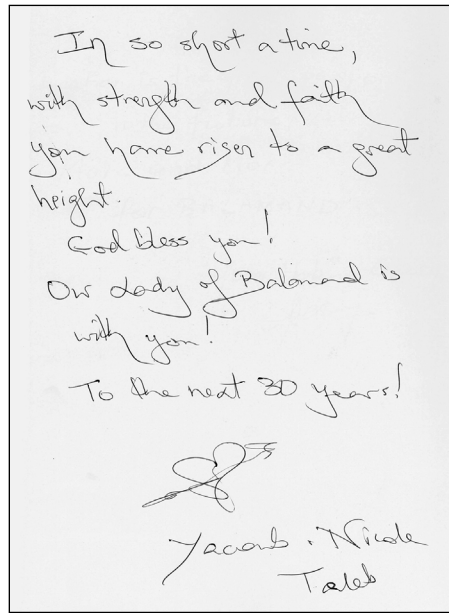 In so short a time,
with strength and faith
you have risen to a great
height.
God bless you!
Our Lady of Balamand is
with you!
To the next 30 years!
Yacoub . Nicole
Taleb